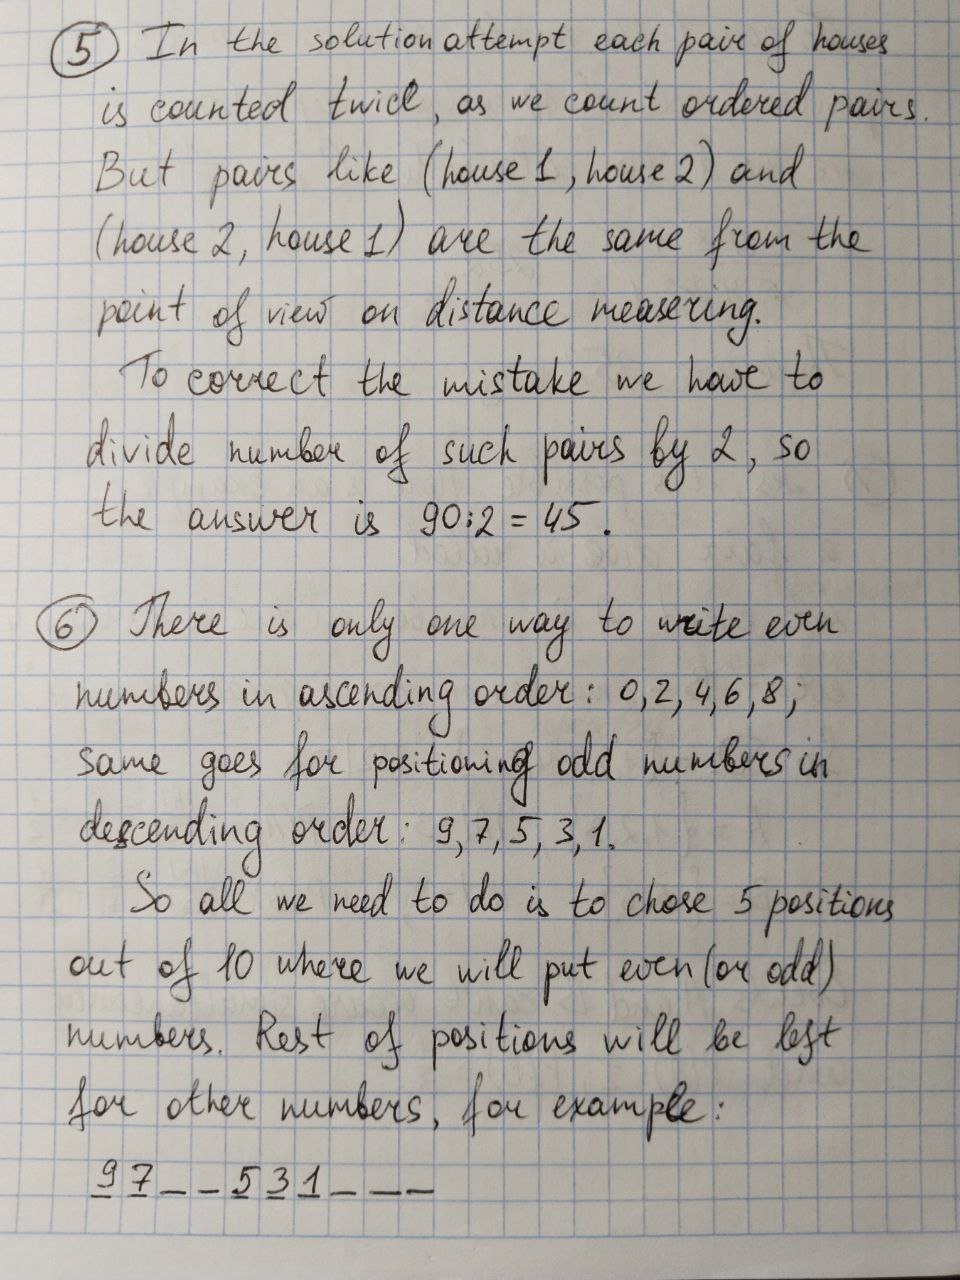 5 In the solution attempt each pair of houses
is counted twice, as we count ordered pairs.
But pairs like (house 1, house 2) and
(house 2, house 1) are the same from the
point of view on distance measering.
To correct the mistake we have to
divide number of such pairs by 2, so
the answer is 90:2 = 45.
6 There is only one way to write even
numbers in ascending order: 0,2,4,6,8;
same goes for positioning odd numbers in
descending order: 9,7,5,3,1.
So all we need to do is to chose 5 positions
out of 10 where we will put even (or odd)
numbers. Rest of positions will be left
for other numbers, for example:
9 7 _ _ 5 3 1 _ _ _